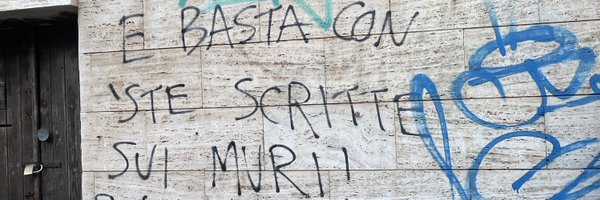 E BASTA CON
'STE SCRITTE
SUI MURI!